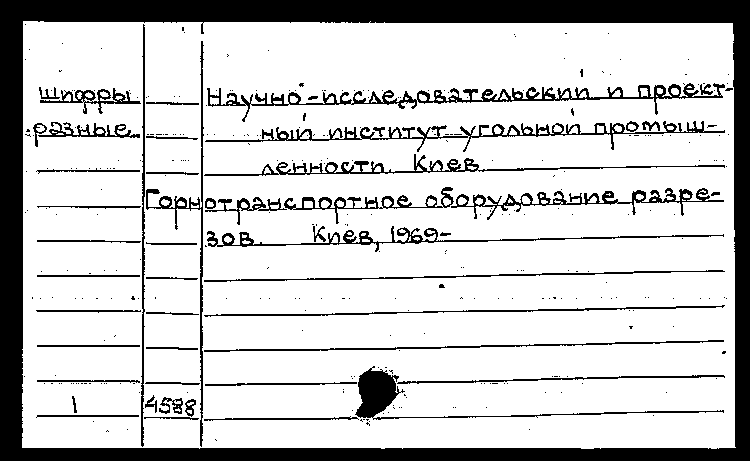 Шифры Научно-исследовательский и проект-
разные ный институт угольной промыш-
ленности. Киев
Горнотранспортное оборудование разре-
зов. Киев, 1969-
1 4588